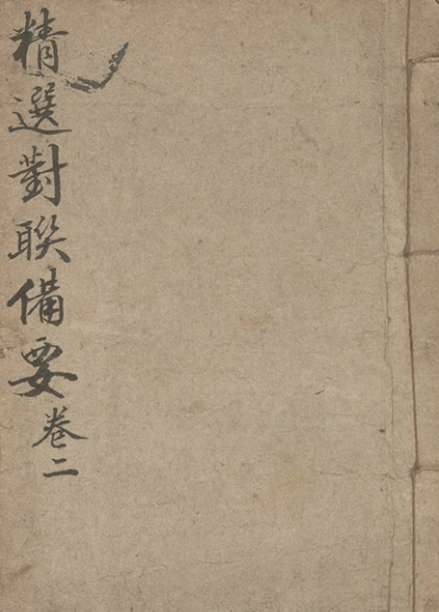 精選對聯備要卷二